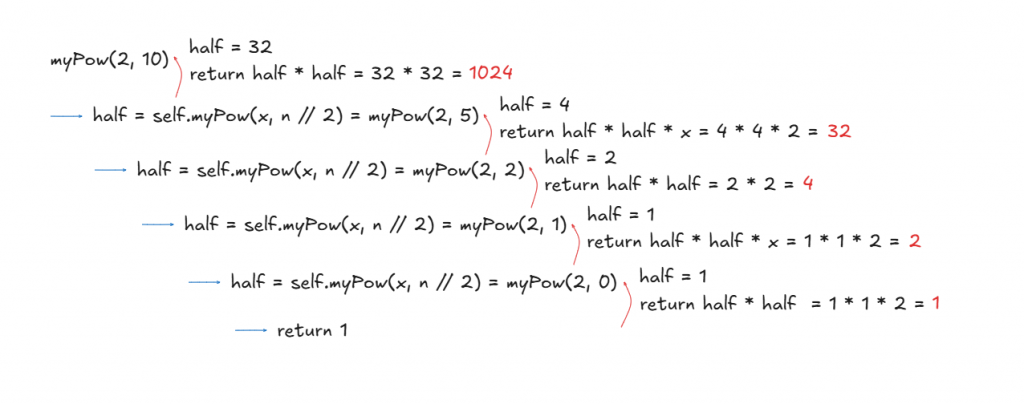 half = 32
myPow(2, 10)
return half * half = 32 * 32 = 1024
half = 4
half = self.myPow(x, n // 2) = myPow(2, 5)
return half * half * x = 4 * 4 * 2 = 32
half = 2
half = self.myPow(x, n // 2) = myPow(2, 2)
return half * half = 2 * 2 = 4
half = 1
half = self.myPow(x, n // 2) = myPow(2, 1)
return half * half * x = 1 * 1 * 2 = 2
half = 1
half = self.myPow(x, n // 2) = myPow(2, 0)
return half * half = 1 * 1 * 2 = 1
return 1